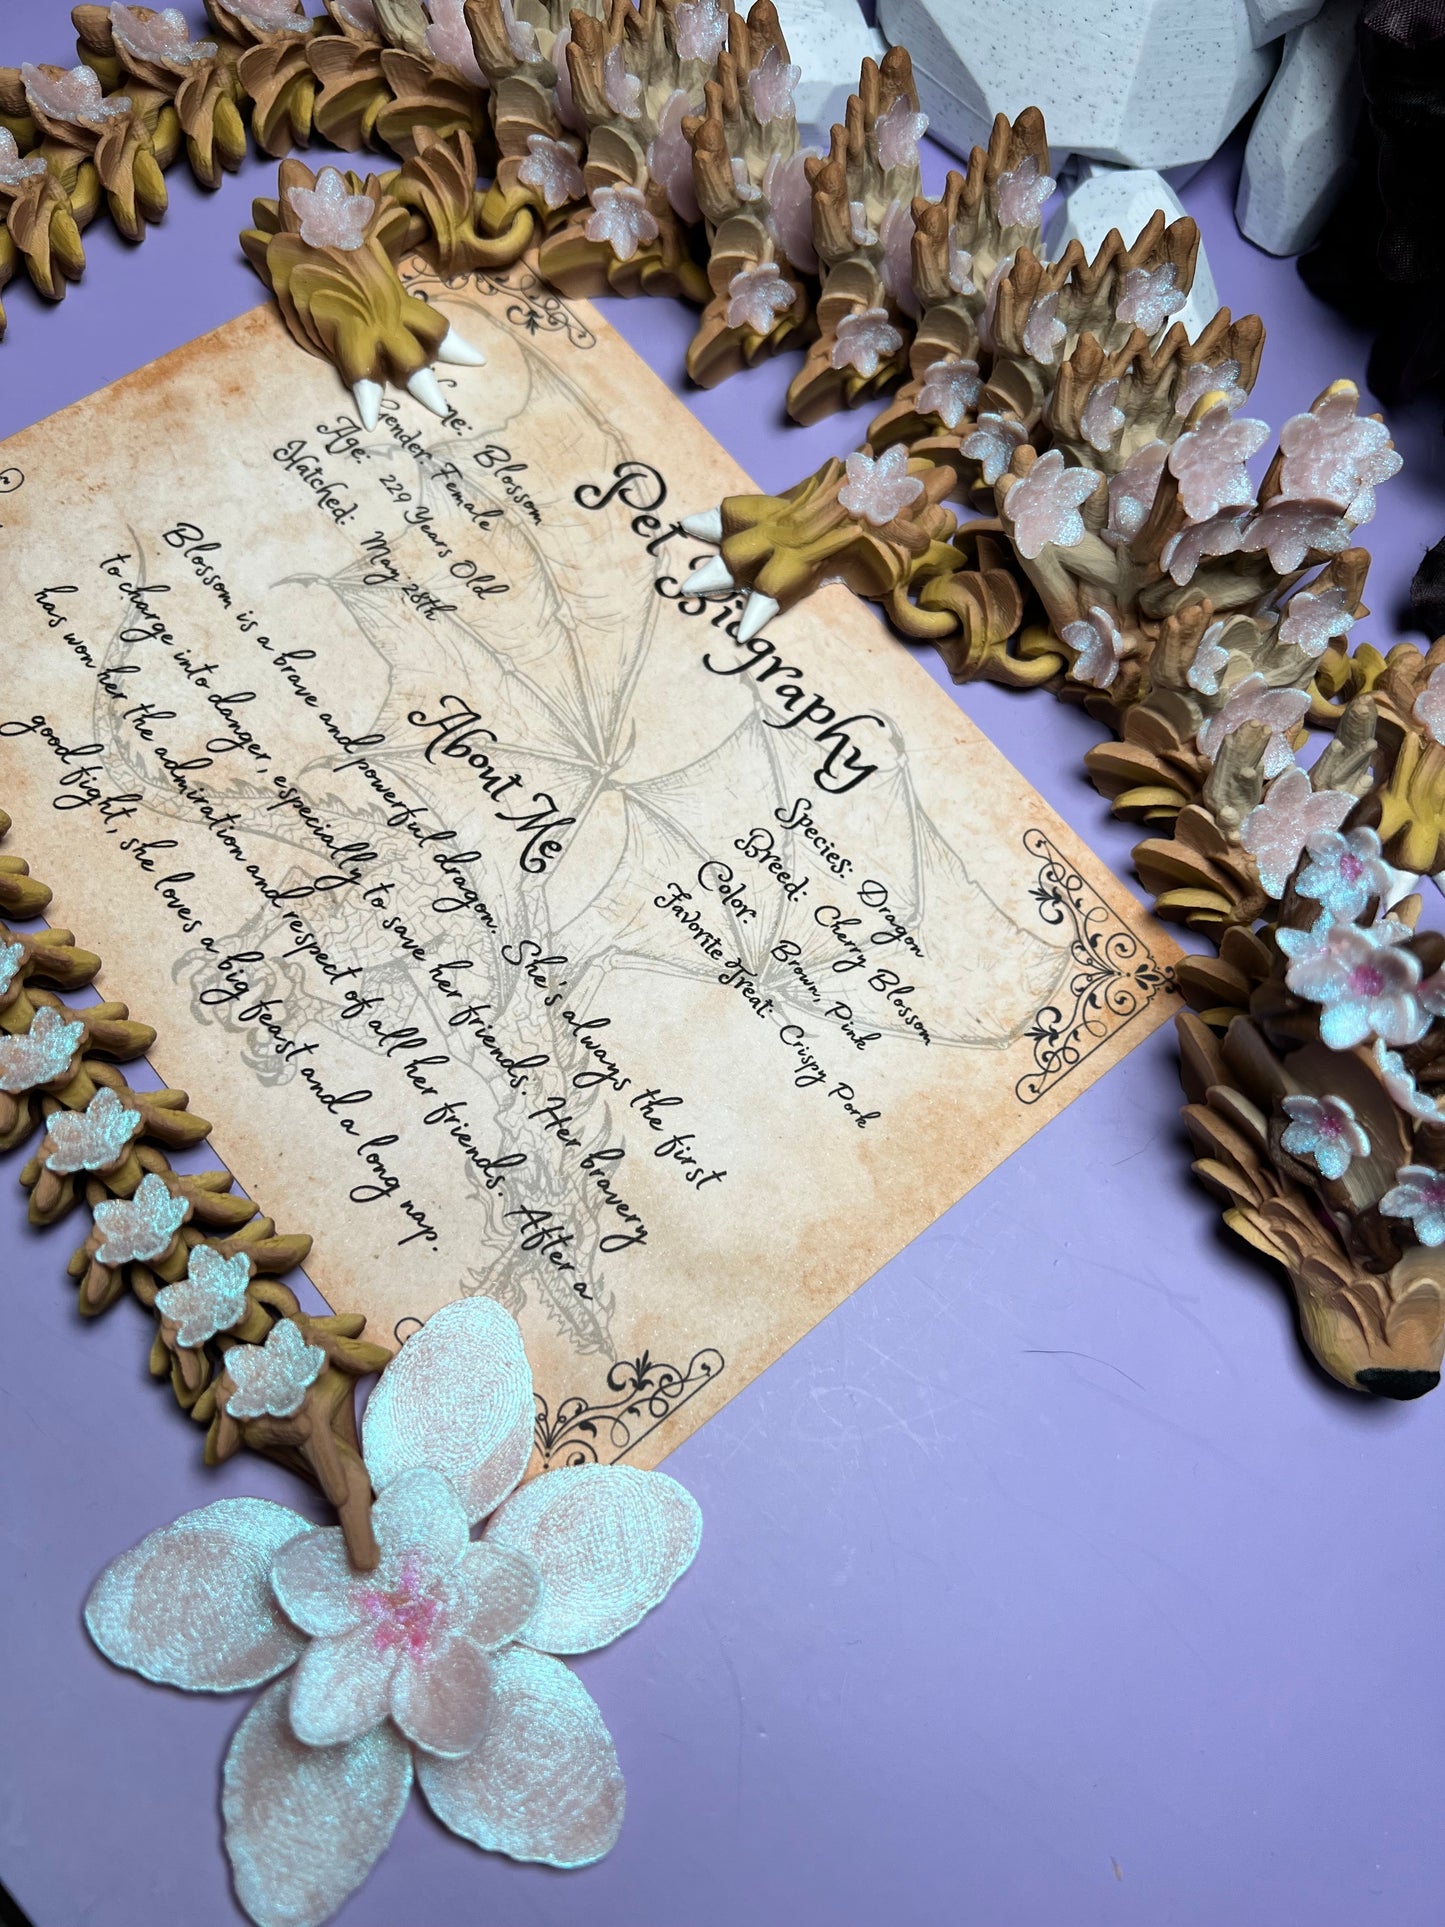 Pet Biography
Name: Blossom
Gender: Female
Age: 229 Years Old
Hatched: May 28th
Species: Dragon
Breed: Cherry Blossom
Color: Brown, Pink
Favorite Treat: Crispy Pork
About Me
Blossom is a brave and powerful dragon. She's always the first
to charge into danger, especially to save her friends. Her bravery
has won her the admiration and respect of all her friends. After a
good fight, she loves a big feast and a long nap.